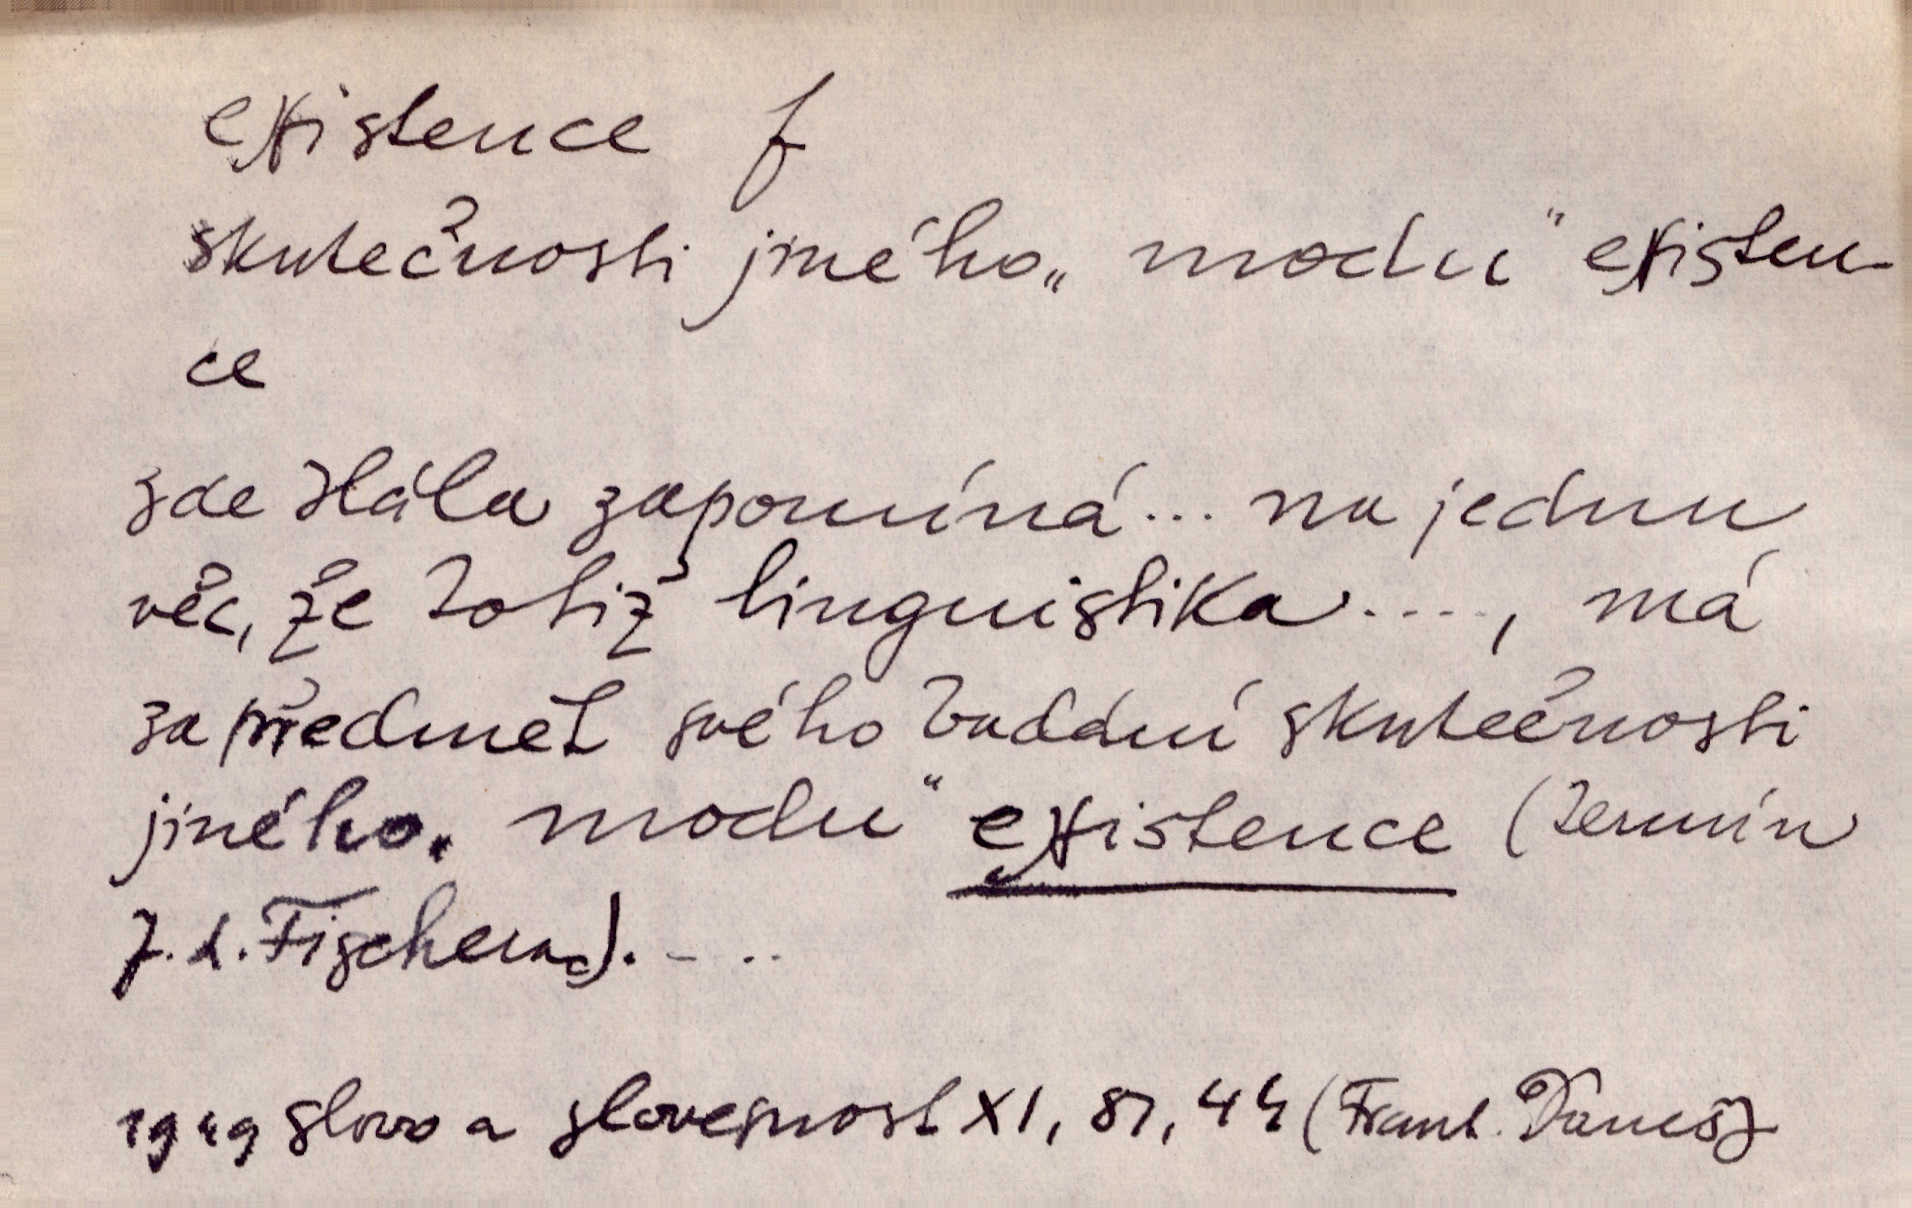 existence f
skutečnosti jiného „modu" existen-
ce
zde Hála zapomíná... na jednu
věc, že totiž linguistika...., má
za předmět svého badání skutečnosti
jiného „modu" existence (termín
J. L. Fischera). - ..
1949 Slovo a slovesnost XI, 81, 44 (Frant. Daneš)